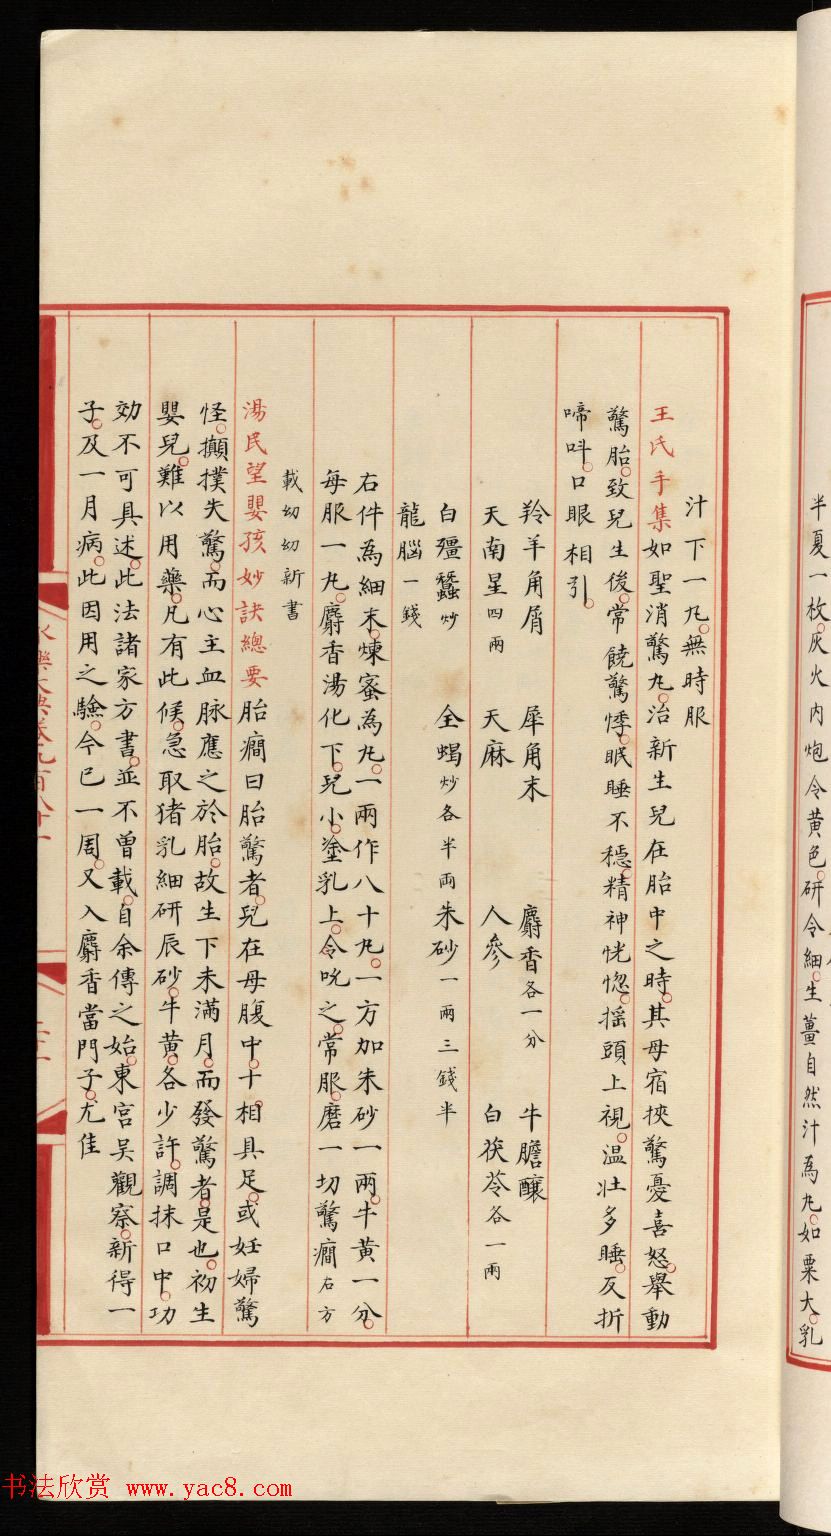 半夏一枚灰火内炮令黄色研令細生薑自然汁為丸如粟大乳
汁下一丸無時服
王氏手集如聖消驚丸治新生兒在胎中之時其母宿挾驚憂喜怒舉動
驚胎致兒生後常饒驚悸眠睡不穩精神恍惚揺頭上視温壮多睡反折
啼呌口眼相引
羚羊角屑 犀角末 麝香各一分 牛膽釀
天南星四兩 天麻 人參 白茯苓各一兩
白殭蠶炒 全蝎炒各半兩 朱砂一兩三錢半
龍腦一錢
右件為細末煉蜜為丸一兩作八十丸一方加朱砂一兩牛黄一分
每服一丸麝香湯化下兒小塗乳上令吮之常服磨一切驚癇右方
載幼幼新書
湯民望嬰孩妙訣總要胎癇曰胎驚者兒在母腹中十相具足或妊婦驚
怪攧撲失驚而心主血脉應之於胎故生下未滿月而發驚者是也初生
嬰兒難以用藥凡有此候急取猪乳細研辰砂牛黄各少許調抹口中功
効不可具述此法諸家方書並不曽載自余傳之始東宫吴觀察新得一
子及一月病此因用之驗今已一周又入麝香當門子尤佳
永樂大典卷九百八十一
书法欣赏 www.yac8.com